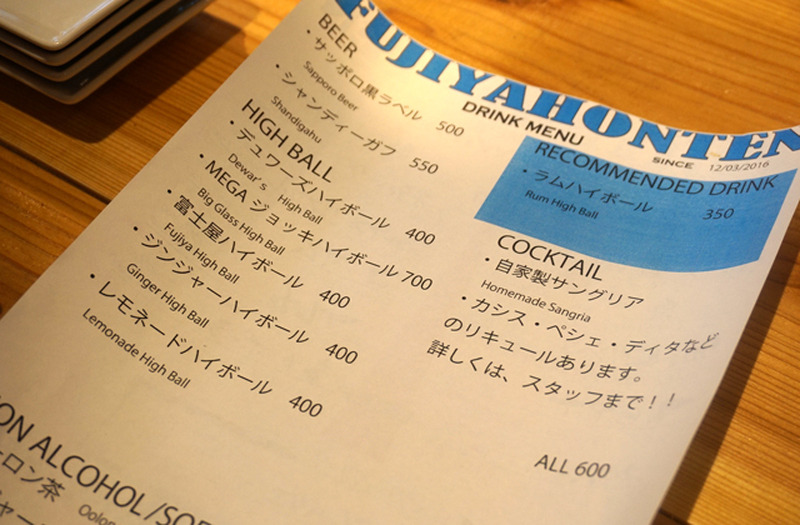 FUJIYAHONTEN
DRINK MENU
SINCE 12/03/2016
BEER
・サッポロ黒ラベル 500
Sapporo Beer
・シャンディーガフ 550
Shandigahu
HIGH BALL
・デュワーズハイボール 400
Dewar's High Ball
・MEGA ジョッキハイボール 700
Big Glass High Ball
・富士屋ハイボール 400
Fujiya High Ball
・ジンジャーハイボール 400
Ginger High Ball
・レモネードハイボール 400
Lemonade High Ball
RECOMMENDED DRINK
・ラムハイボール 350
Rum High Ball
COCKTAIL
・自家製サングリア
Homemade Sangria
・カシス・ペシェ・ディタなど
のリキュールあります。
詳しくは、スタッフまで！！
ALL 600
ON ALCOHOL /SOF
ーロン茶
Oolon